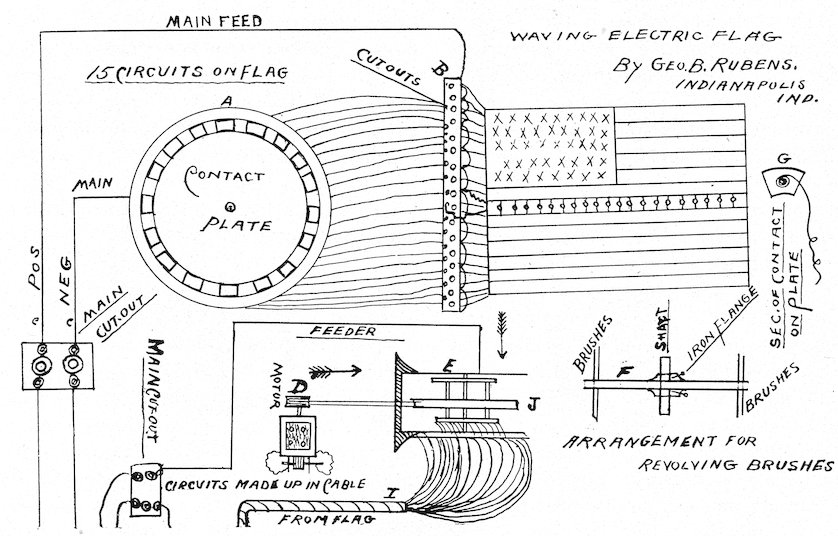 MAIN FEED
WAVING ELECTRIC FLAG
By GEO. B. RUBENS.
INDIANAPOLIS
IND.
15 CIRCUITS ON FLAG
CUTOUTS
B
A
CONTACT
PLATE
MAIN
G
SEC. OF CONTACT
ON PLATE
POS
NEG
C
C
MAIN
CUT.OUT
FEEDER
MAIN CUT-OUT
MOTOR
D
E
J
BRUSHES
F
SHAFT
IRON FLANGE
BRUSHES
ARRANGEMENT FOR
REVOLVING BRUSHES
CIRCUITS MADE UP IN CABLE
I
FROM FLAG